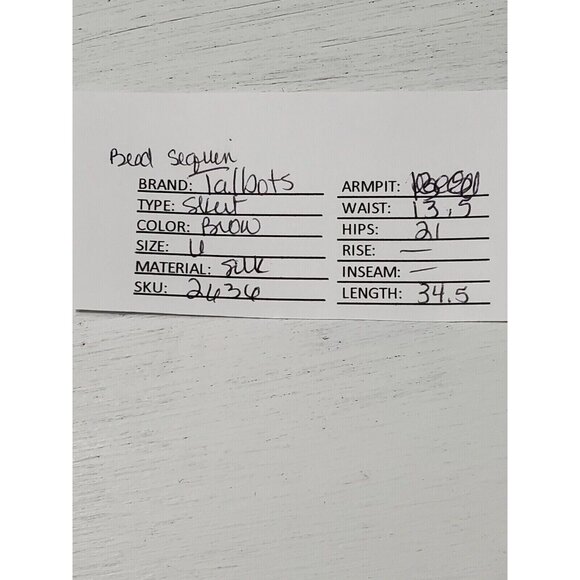 Bead Sequin
BRAND: Talbots
TYPE: Skirt
COLOR: Brow
SIZE:
MATERIAL: Silk
SKU: 2636
ARMPIT:
WAIST: 13.5
HIPS: 21
RISE: —
INSEAM: —
LENGTH: 34.5